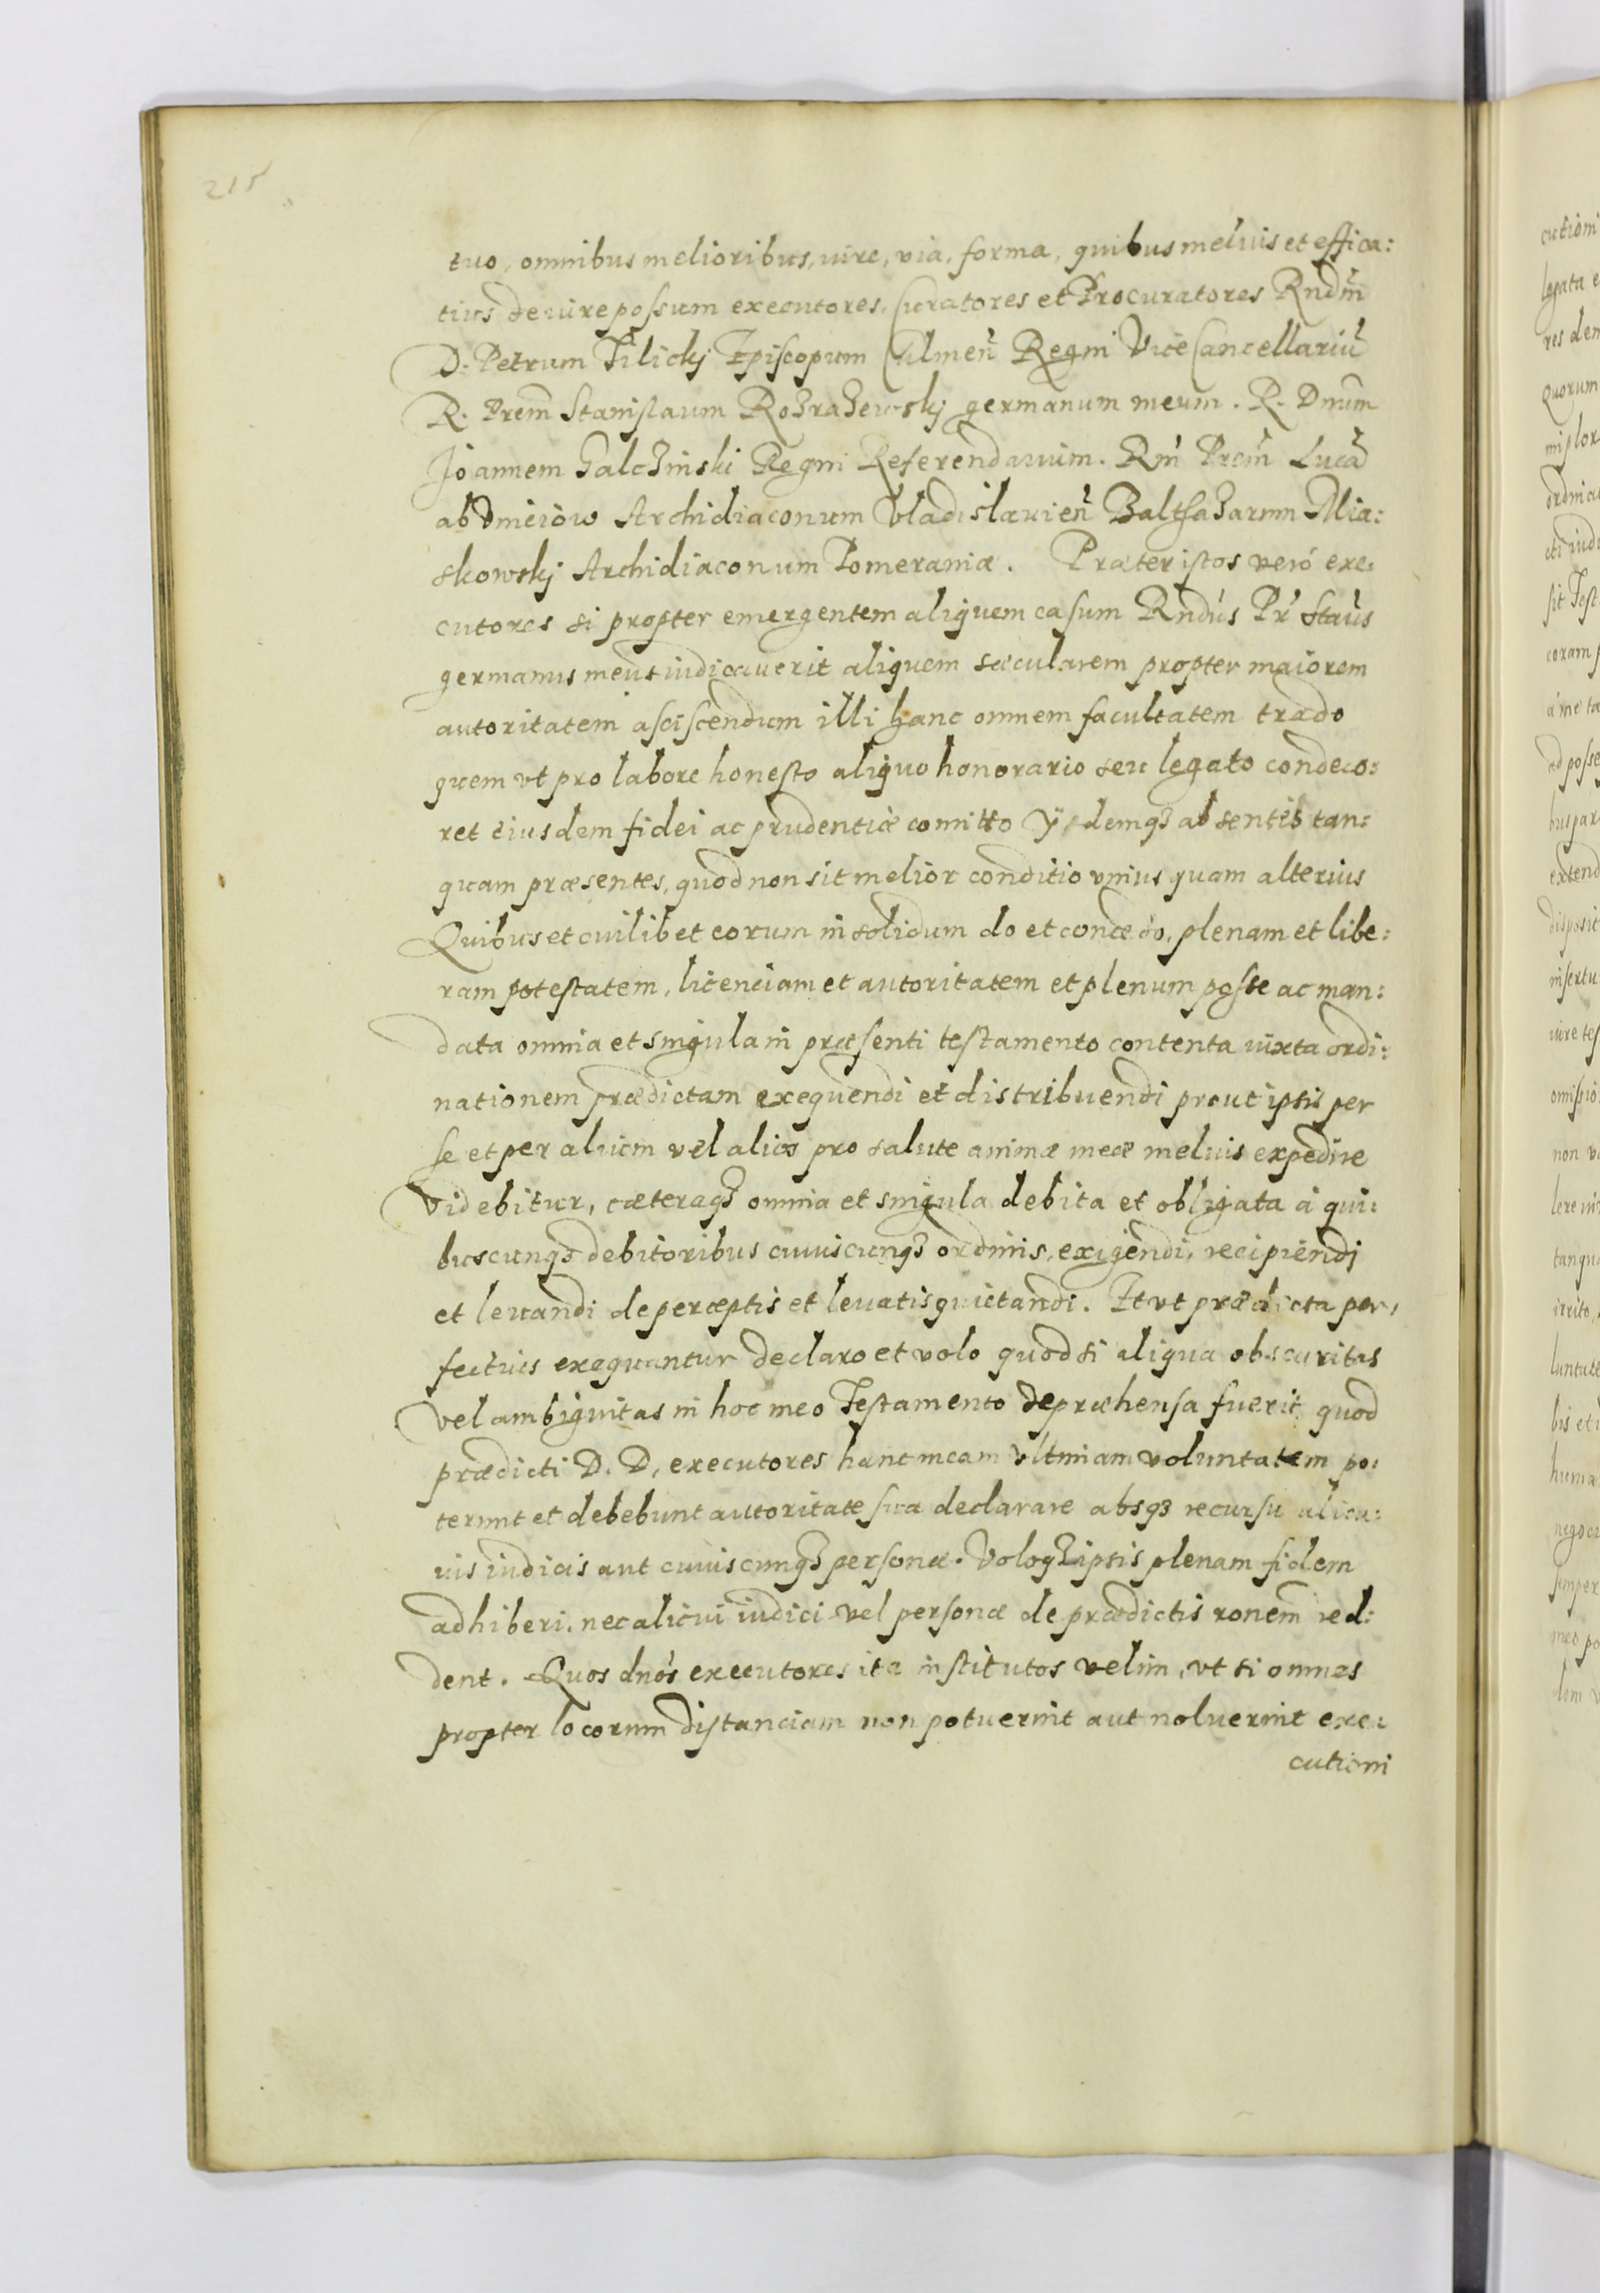 215
tuo, omnibus melioribus, iure, via, forma, quibus melius et effica:
tius de iure possum executores, Curatores et Procuratores Rndm̃
D. Petrum Tilickj Episcopum Culmen̄ Regni ViceCancellariū
R. Prem̃ Stanislaum Rozrazewskj germanum meum. R. Dnum̃
Joannem Galczinski Regni Referendarium. Rm̃ Prem̃ Lucā
ab Vnieiow Archidiaconum Vladislauien̄ Balthazarum Mia:
skowskj Archidiaconum Pomeraniæ. Præter istos veró exe:
cutores si propter emergentem aliquem casum Rndũs Pr̃ Staũs
germanus meus iudicauerit aliquem sæcularem propter maiorem
autoritatem asciscendum illi hanc omnem facultatem trado
quem vt pro labore honesto aliquo honorario seu legato condeco:
ret eiusdem fidei ac prudentiæ comitto ÿsdemqȝ absentib tan:
quam præsentes, quod non sit melior conditio vnius quam alterius
Quibus et cuilibet eorum in solidum do et concedo, plenam et libe:
ram potestatem, licenciam et autoritatem et plenum posse ac man:
data omnia et singula in præsenti testamento contenta iuxta ordi:
nationem prædictam exequendi et distribuendi prout ipsis per
se et per alium vel alios pro salute animæ meæ melius expedire
Videbitur, cæteraqȝ omnia et singula debita et obligata à qui:
buscunqȝ debitoribus cuiuscunqȝ ordinis, exigendi, recipiendi
et leuandi de perceptis et leuatis quietandi. Et vt prædicta per,
fectius exequantur declaro et volo quod si aliqua obscuritas
vel ambiguitas in hoc meo Testamento depræhensa fuerit quod
prædicti D. D, executores hanc meam vltimam voluntatem po:
terunt et debebunt autoritate sua declarare absqȝ recursu alicu:
ius iudicis aut cuiuscunqȝ personæ. Voloqȝ ipsis plenam fidem
adhiberi, nec alicui iudici vel personæ de prædictis ronem̃ red:
dent. Quos dnós executores ita institutos velim, vt si omnes
propter locorum distanciam non potuerint aut noluerint exe:
cutioni
cutioni
legata e
res dem
quorum
implor
sit Test
coram p
à me ta
ad posse
bus par
extend
disposit
insertu
iure tes
omissio
non v
tanqu
irrito,
luntate
bis et
huma
negoci
semper
meo po